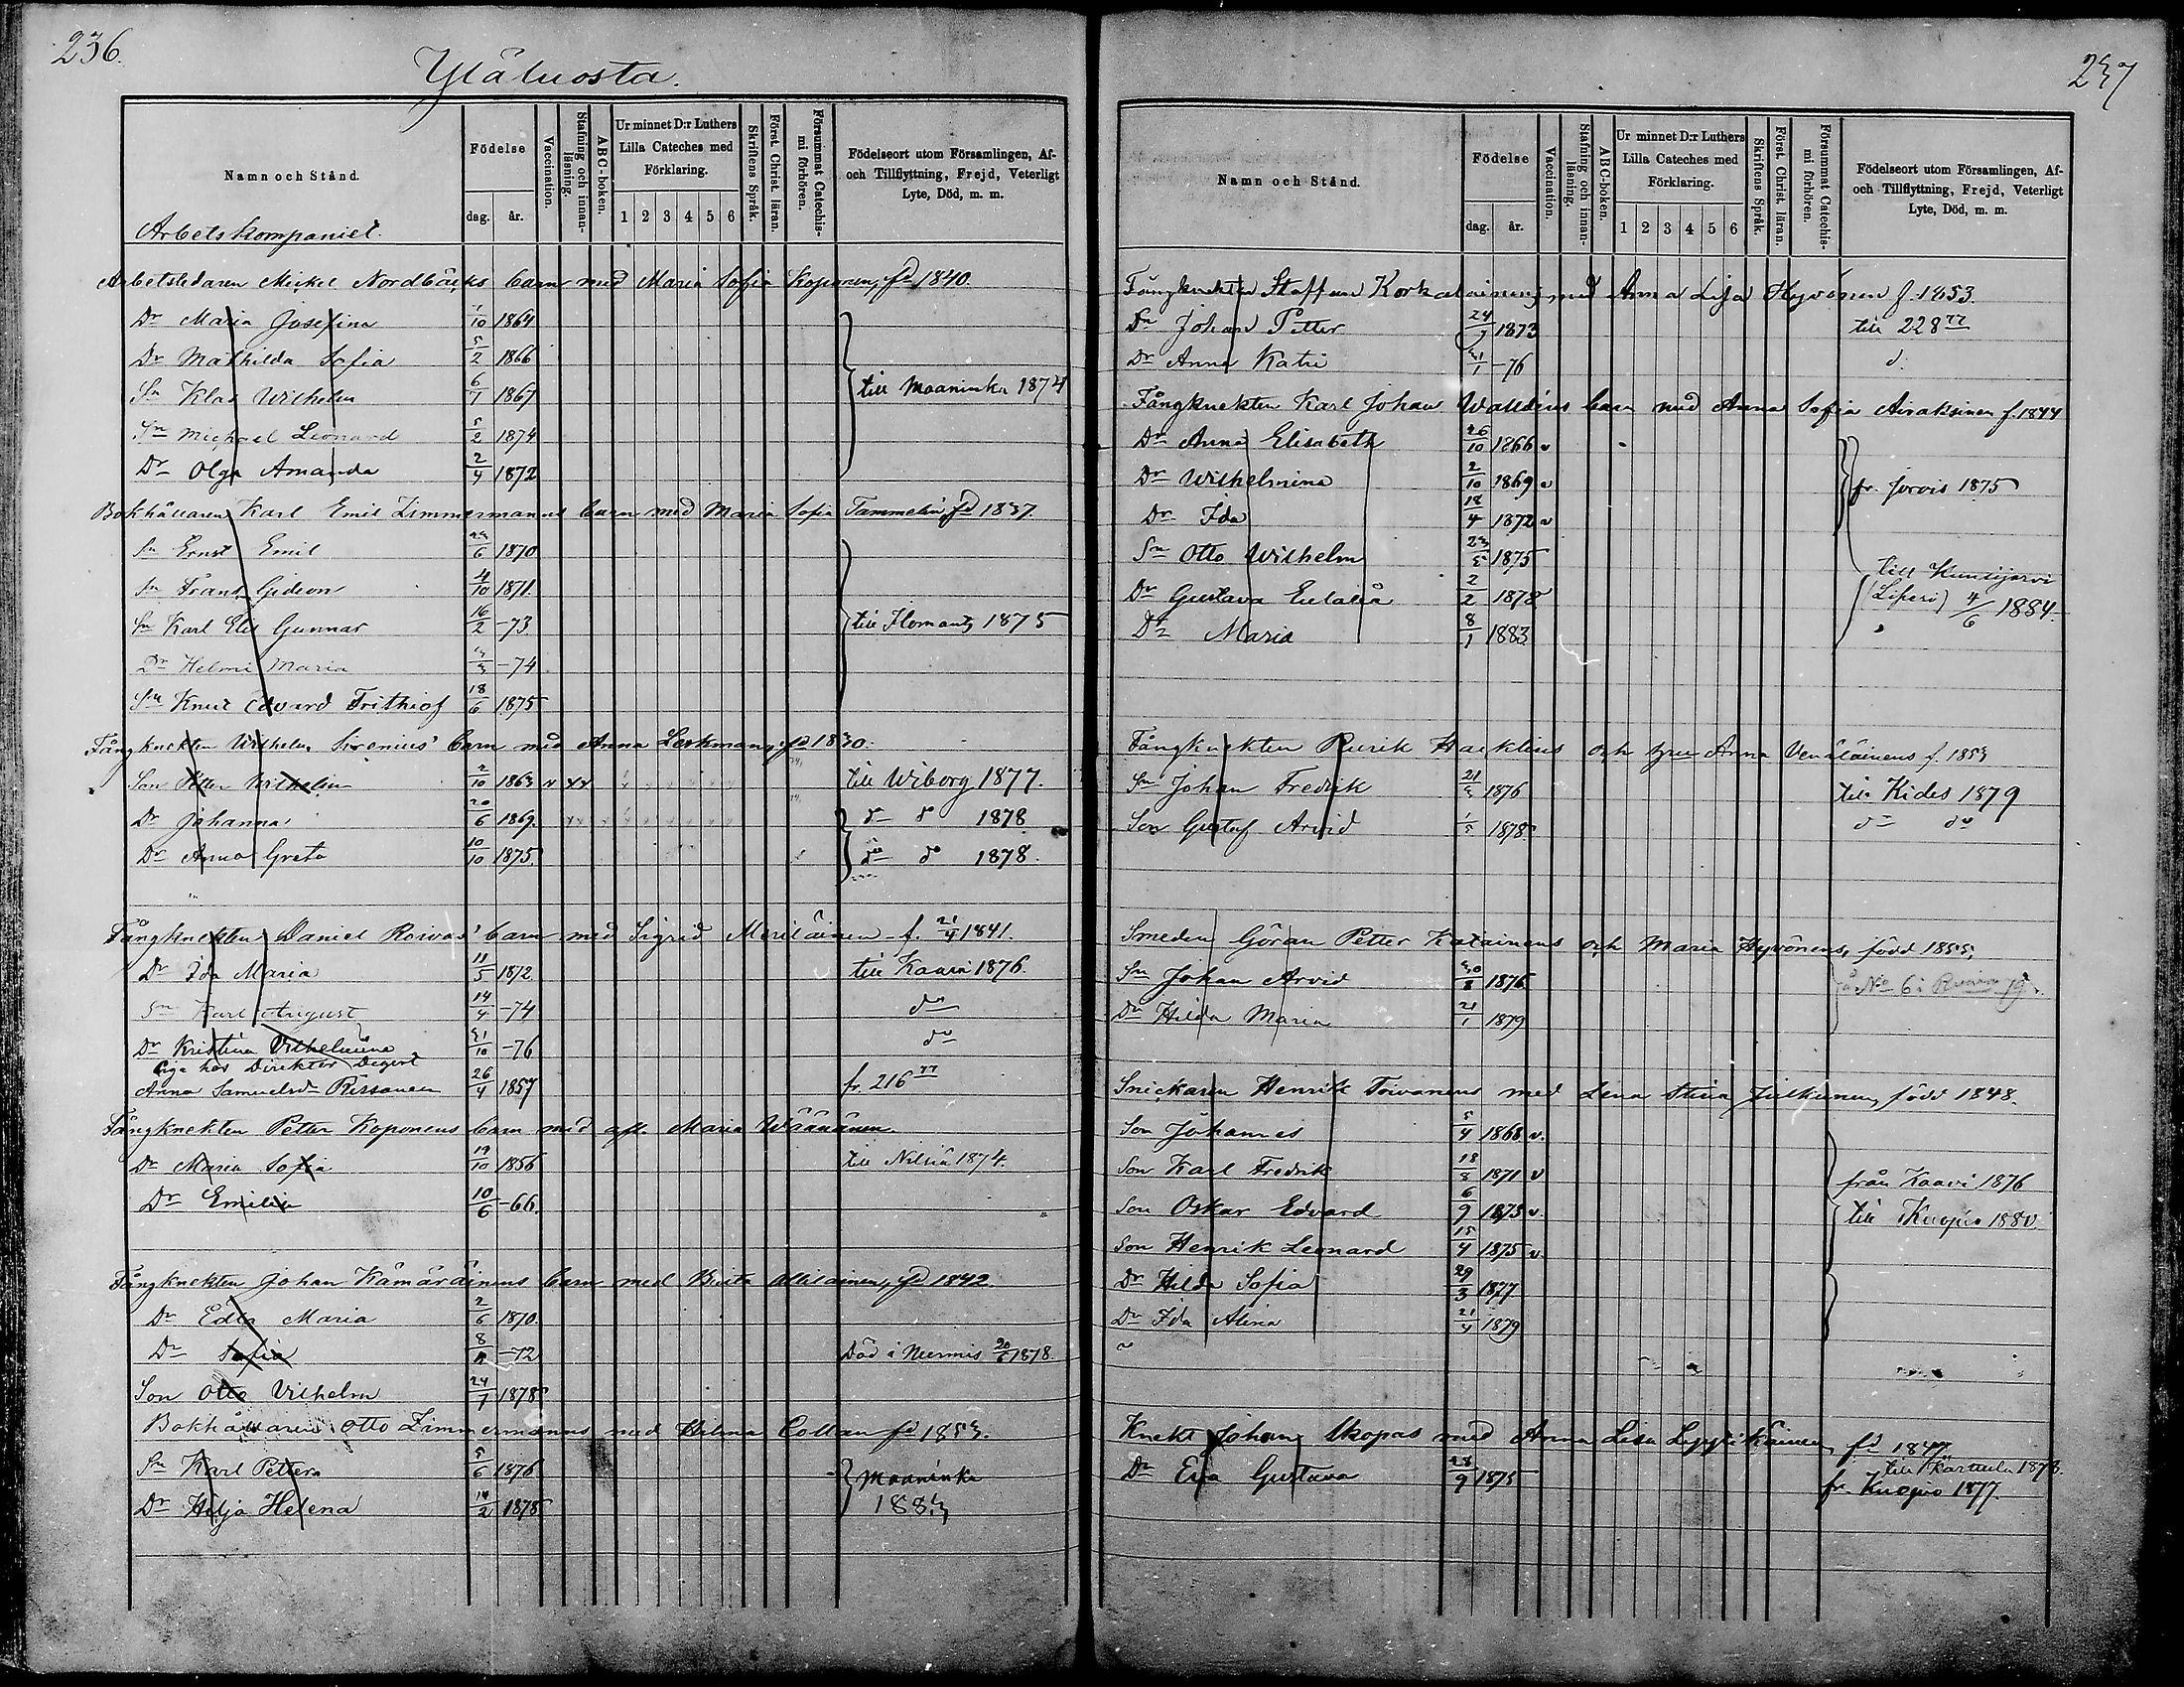 236.
Yläluosta.
Namn och Stånd.
Födelse
dag. år.
Vaccination.
Stafning och innan-läsning.
ABC-boken.
Ur minnet D:r Luthers
Lilla Cateches med
Förklaring.
1 2 3 4 5 6
Skriftens Språk.
Först. Christ. läran.
Försummat Catechis-mi förhören.
Födelseort utom Församlingen, Af-
och Tillflyttning, Frejd, Veterligt
Lyte, Död, m. m.
Arbetskompaniet.
Arbetsledaren Mickel Nordbäcks barn med Maria Sofia Koponen, fd 1840.
Dr Maria Josefina 1/10 1864
Dr Mathilda Sofia 5/2 1866
Sn Klas Wilhelm 6/7 1867 till Maaninka 1874
Sn Michael Leonard 5/2 1874
Dr Olga Amanda 2/4 1872
Bokhållaren Karl Emil Zimmermanns barn med Maria Sofia Tammelin fd 1837.
Sn Ernst Emil 23/6 1870
Sn Frans Gideon 4/10 1871.
Sn Karl Elis Gunnar 16/2 -73 till Ilomants 1875
Dr Helmi Maria 3/3 -74
Sn Knut Edvard Frithiof 18/6 1875
Fångknekten Wilhelm Sirenius' barn med Anna Leskmann, fd 1830.
Son Petter Wilhelm 2/10 1863 v xx till Wiborg 1877.
Dr Johanna 20/6 1869. do do 1878
Dr Anna Greta 10/10 1875. do do 1878.
Fångknekten Daniel Roivas' barn med Sigrid Meriläinen f. 21/4 1841.
Dr Ida Maria 11/5 1872 till Kaavi 1876.
Sn Karl August 14/4 -74 do
Dr Kristina Vilhelmina 31/10 -76 do
Piga hos Direktör Degert
Anna Samuelsdr Rissanen 26/4 1857 fr. 216 77
Fångknekten Petter Koponens barn med afl. Maria Väänänen
Dr Maria Sofia 19/10 1856 till Nilsiä 1874.
Dr Emilia 10/6 -66.
Fångknekten Johan Kämäräinens barn med Brita Ollilainen, fd 1842.
Dr Edla Maria 2/6 1870.
Dr Sofia 8/8 -72 Död i Nurmis 20/6 1878.
Son Otto Vilhelm 24/7 1878
Bokhållaren Otto Zimmermanns med Hilma Collan fd 1853.
Sn Karl Petter 5/6 1876 Maaninka
Dr Hilja Helena 14/2 1878 1883
237
Namn och Stånd.
Födelse
dag. år.
Vaccination.
Stafning och innan-läsning.
ABC-boken.
Ur minnet D:r Luthers
Lilla Cateches med
Förklaring.
1 2 3 4 5 6
Skriftens Språk.
Först. Christ. läran.
Försummat Catechis-mi förhören.
Födelseort utom Församlingen, Af-
och Tillflyttning, Frejd, Veterligt
Lyte, Död, m. m.
Fångknekten Staffan Korkalainens med Anna Lisa Hyvönen f. 1853.
Sn Johan Petter 24/7 1873 till 228 77
Dr Anna Katri 31/1 -76 d.
Fångknekten Karl Johan Walldéns barn med Anna Sofia Airaksinen f. 1844
Dr Anna Elisabeth 26/10 1866 v
Dr Wilhelmina 2/10 1869 v fr. Jorvis 1875
Dr Ida 18/4 1872 v
Sn Otto Wilhelm 23/5 1875
Dr Gustava Eulalia 2/2 1878 till Kuusjärvi
(Liperi) 4/6 1884.
Dr Maria 8/1 1883
Fångknekten Rurik Hacklins och hru Anna Venäläinens f. 1853
Sn Johan Fredrik 21/3 1876 till Kides 1879
Son Gustaf Arvid 1/5 1878. do do
Smeden Göran Petter Kataïnens och Maria Hyvönens, född 1855,
Sn Johan Arvid 30/8 1876 No 6 i
Dr Hilda Maria 21/1 1879
Snickaren Henrik Toivanens med Lena Stina Julkunen, född 1848.
Son Johannes 5/4 1868 v.
Son Karl Fredrik 18/8 1871 v från Kaavi 1876
Son Oskar Edvard 6/9 1873 v. till Kuopio 1880
Son Henrik Leonard 15/4 1875 v
Dr Hilda Sofia 29/3 1877
Dr Ida Alina 21/4 1879
Knekt Johan Skopas med Anna Lisa Lyytikäinen, fd 1847
till Karttula 1878.
Dr Eva Gustava 28/9 1875 fr. Kuopio 1877.